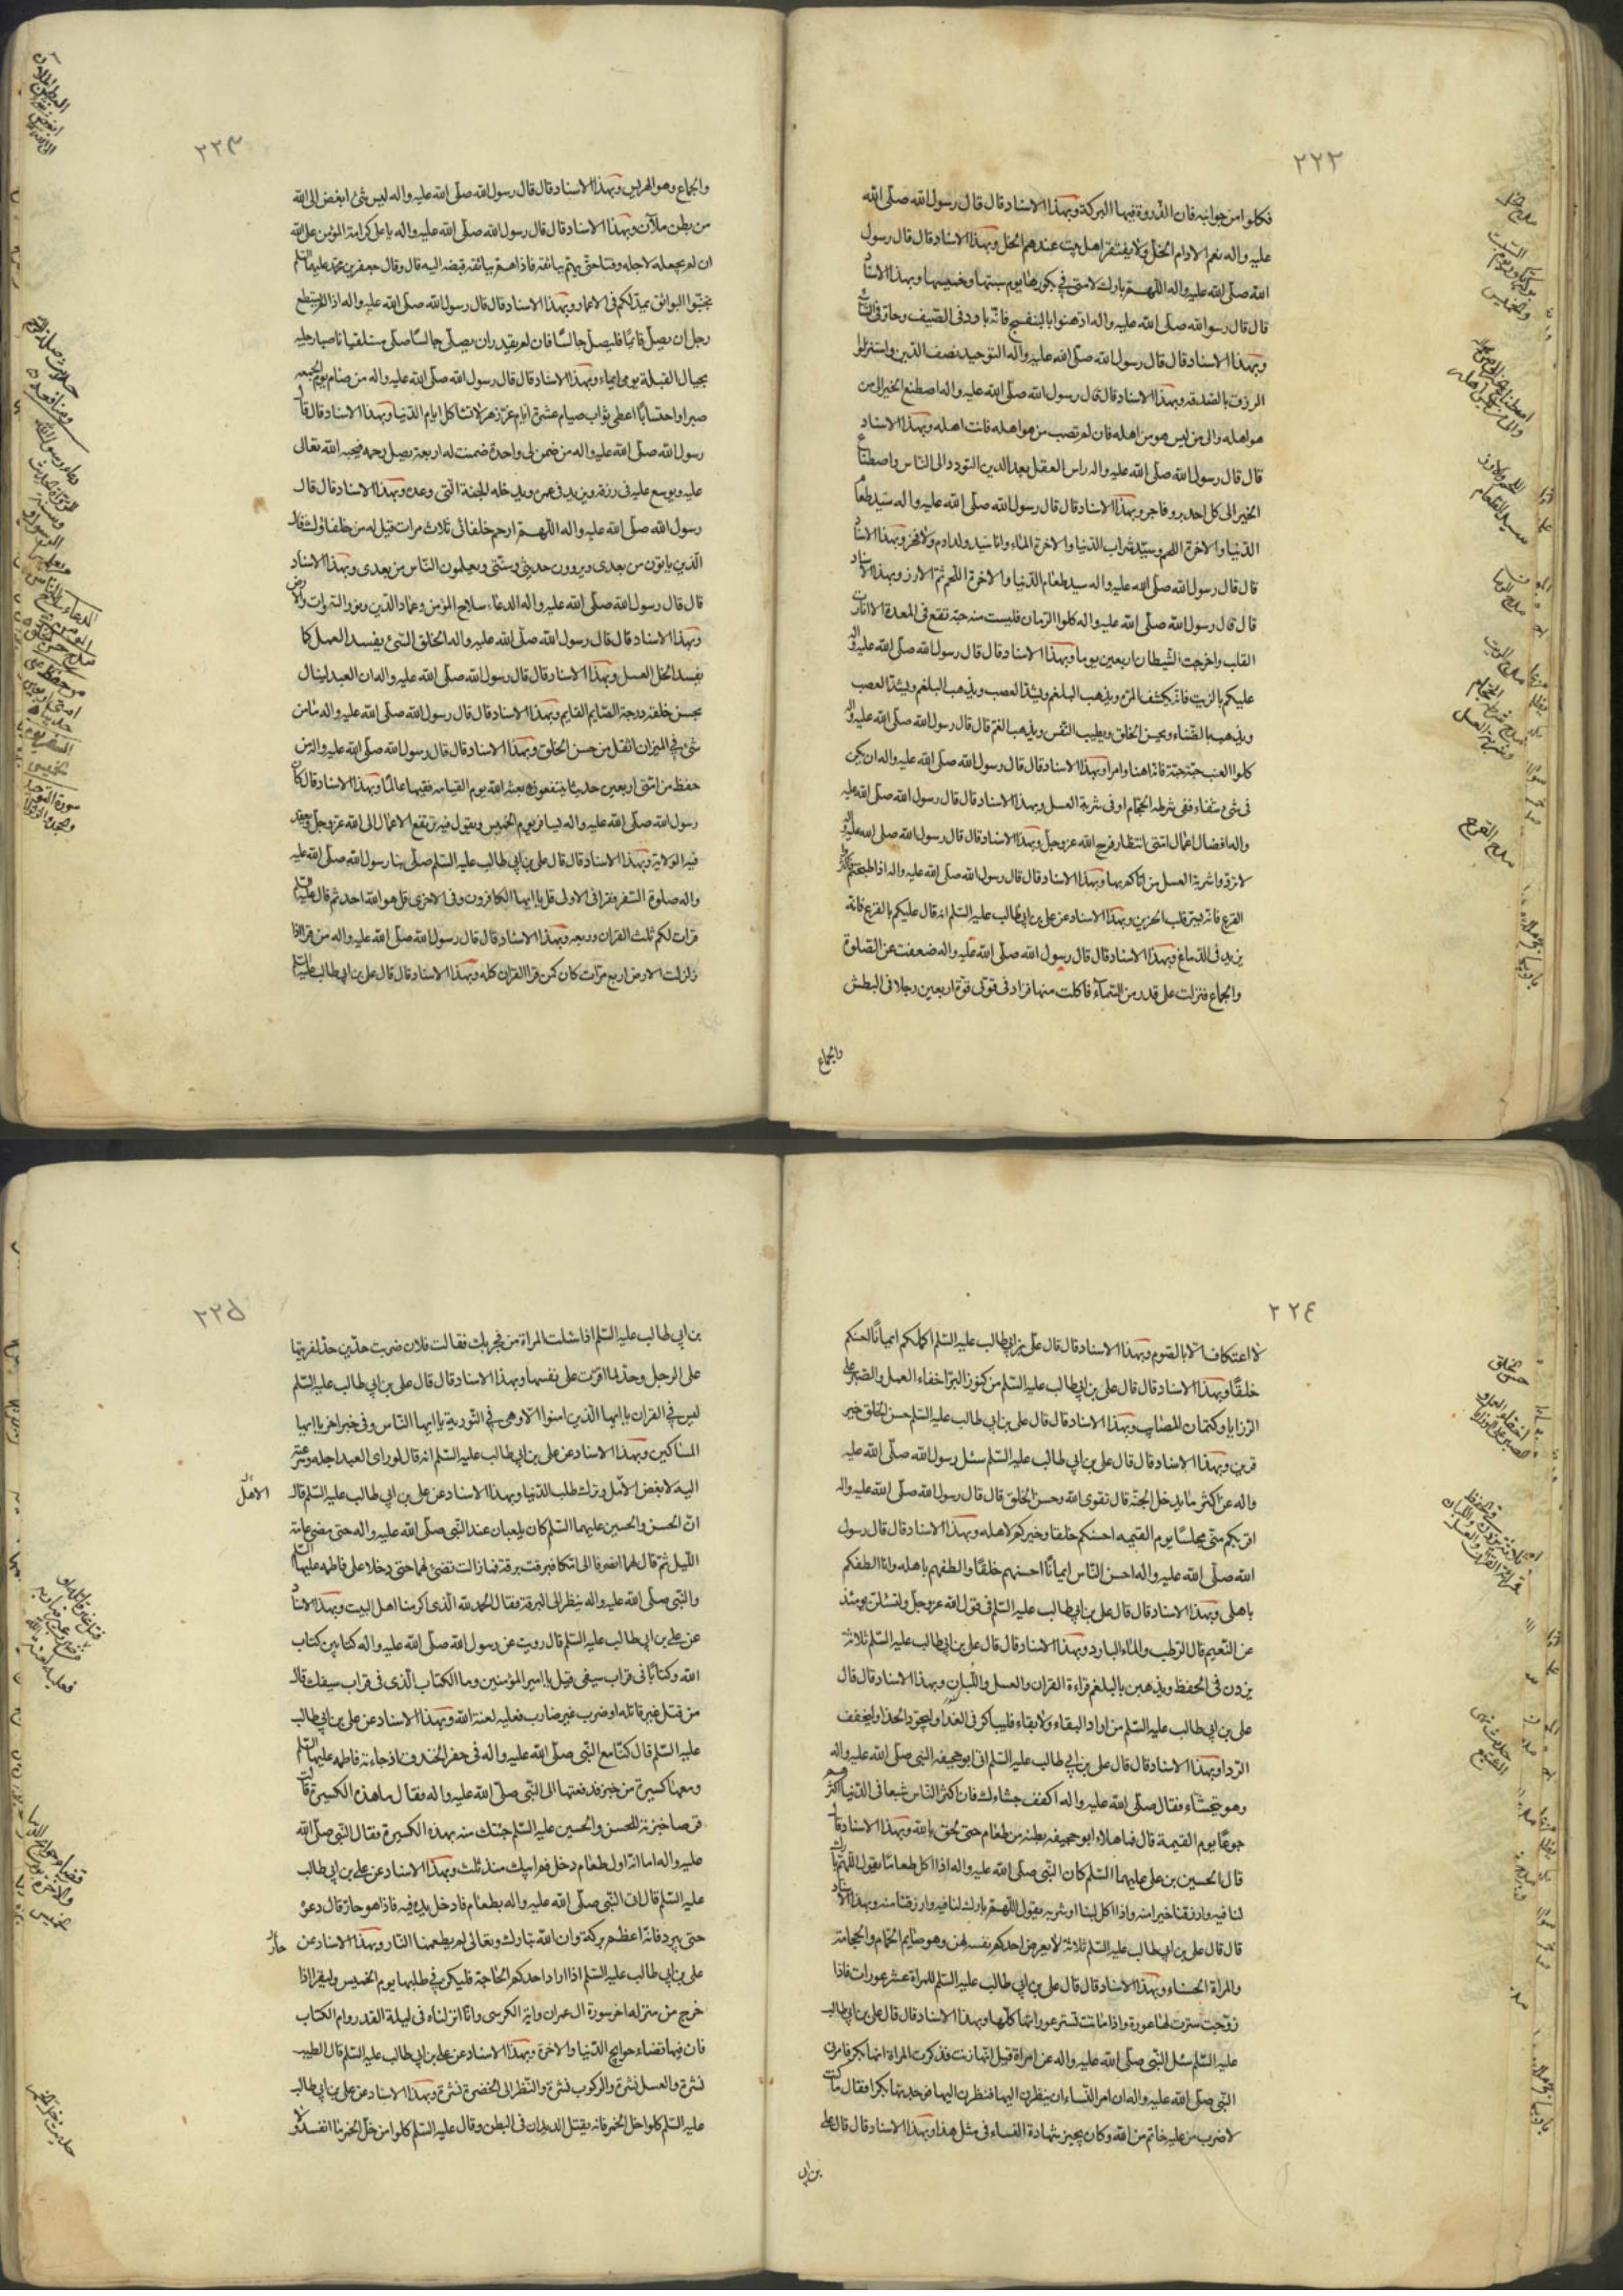 ٢٢٢
فكلوا من جوانبه فان الذروة فيها البركة وبهذا الاسناد قال قال رسول الله صلى الله
عليه واله نعم الادام الخل ولا يفتقر اهل بيت عندهم الخل وبهذا الاسناد قال قال رسول
الله صلى الله عليه واله اللهم بارك لامتى في بكورها يوم سبتها وخميسها وبهذا الاسناد
قال قال رسول الله صلى الله عليه واله ادهنوا بالبنفسج فانه بارد فى الصيف وحار فى الشتاء
وبهذا الاسناد قال قال رسول الله صلى الله عليه واله التوحيد نصف الدين واستنزلوا
الرزق بالصدقه وبهذا الاسناد قال قال رسول الله صلى الله عليه واله اصطنع الخير الى من
هو اهله والى من ليس هو من اهله فان لم تصب من هو اهله فانت اهله وبهذا الاسناد
قال قال رسول الله صلى الله عليه واله راس العقل بعد الدين التودد الى الناس واصطناع
الخير الى كل احد بر وفاجر وبهذا الاسناد قال قال رسول الله صلى الله عليه واله سيد طعام
الدنيا والاخرة اللحم وسيد شراب الدنيا والاخرة الماء وانا سيد ولد ادم ولا فخر وبهذا الاسناد
قال قال رسول الله صلى الله عليه واله سيد طعام الدنيا والاخرة اللحم ثم الارز وبهذا الاسناد
قال قال رسول الله صلى الله عليه واله كلوا الرمان فليست منه حبة تقع فى المعدة الا انارت
القلب واخرجت الشيطان اربعين يوما وبهذا الاسناد قال قال رسول الله صلى الله عليه واله
عليكم بالزيت فانه يكشف المرة ويذهب البلغم ويشد العصب ويذهب البلغم ويشد العصب
ويذهب بالضناء ويحسن الخلق ويطيب النفس ويذهب الغم قال قال رسول الله صلى الله عليه واله
كلوا العنب حبة حبة فانه اهنا وامرا وبهذا الاسناد قال قال رسول الله صلى الله عليه واله ان يكن
فى شئ شفاء ففى شرطة الحجام او فى شربة العسل وبهذا الاسناد قال قال رسول الله صلى الله عليه
واله افضل اعمال امتى انتظار فرج الله عز وجل وبهذا الاسناد قال قال رسول الله صلى الله عليه واله
لا تردوا شربة العسل من اتاكم بها وبهذا الاسناد قال قال رسول الله صلى الله عليه واله اذا طبختم فاكثروا
القرع فانه يسر قلب الحزين وبهذا الاسناد عن على بن ابى طالب عليه السلم انه قال عليكم بالقرع فانه
يزيد فى الدماغ وبهذا الاسناد قال قال رسول الله صلى الله عليه واله ضعفت عن الصلوة
والجماع فنزلت على قدر من السماء فاكلت منها فزاد فى قوتى قوة اربعين رجلا فى البطش
والجماع
٢٢٣
والجماع وهو الهريس وبهذا الاسناد قال قال رسول الله صلى الله عليه واله ليس شئ ابغض الى الله
من بطن ملآن وبهذا الاسناد قال قال رسول الله صلى الله عليه واله يا على كرامة المؤمن على الله
ان لم يجعله لاجله وقتا حتى يهتم ببائقة فاذا هم ببائقة قبضه اليه قال وقال جعفر بن محمد عليهما السلم
تجنبوا البوائق يمد لكم فى الاعمار وبهذا الاسناد قال قال رسول الله صلى الله عليه واله اذا لم يستطع
رجل ان يصلى قائما فليصل جالسا فان لم يقدر ان يصلى جالسا صلى مستلقيا ناصبا رجليه
بحيال القبلة يومى ايماء وبهذا الاسناد قال قال رسول الله صلى الله عليه واله من صام يوم الجمعه
صبرا واحتسابا اعطى ثواب صيام عشرة ايام غر زهر لا تشاكل ايام الدنيا وبهذا الاسناد قال قال
رسول الله صلى الله عليه واله من ضمن لى واحدة ضمنت له اربعة يصل رحمه فيحبه الله تعالى
عليه ويوسع عليه فى رزقه ويزيد فى عمره ويدخله الجنة التى وعده وبهذا الاسناد قال قال
رسول الله صلى الله عليه واله اللهم ارحم خلفائى ثلاث مرات قيل له من خلفاؤك قال
الذين ياتون من بعدى ويروون حديثى وسنتى ويعلمون الناس من بعدى وبهذا الاسناد
قال قال رسول الله صلى الله عليه واله الدعاء سلاح المؤمن وعماد الدين ونور السموات والارض
وبهذا الاسناد قال قال رسول الله صلى الله عليه واله الخلق السئ يفسد العمل كما
يفسد الخل العسل وبهذا الاسناد قال قال رسول الله صلى الله عليه واله ان العبد لينال
بحسن خلقه درجة الصايم القايم وبهذا الاسناد قال قال رسول الله صلى الله عليه واله ما من
شئ فى الميزان اثقل من حسن الخلق وبهذا الاسناد قال قال رسول الله صلى الله عليه واله من
حفظ من امتى اربعين حديثا ينتفعون به بعثه الله يوم القيامه فقيها عالما وبهذا الاسناد قال كان
رسول الله صلى الله عليه واله يسافر يوم الخميس ويقول فيه ترتفع الاعمال الى الله عز وجل وتعقد
فيه الولاية وبهذا الاسناد قال قال على بن ابى طالب عليه السلم صلى بنا رسول الله صلى الله عليه
واله صلوة السفر فقرا فى الاولى قل يا ايها الكافرون وفى الاخرى قل هو الله احد ثم قال عليه السلم
قرات لكم ثلث القران وربعه وبهذا الاسناد قال قال رسول الله صلى الله عليه واله من قرا اذا
زلزلت الارض اربع مرات كان كمن قرا القران كله وبهذا الاسناد قال قال على بن ابى طالب عليه السلم
٢٢٤
لا اعتكاف الا بالصوم وبهذا الاسناد قال قال على بن ابى طالب عليه السلم اكملكم ايمانا احسنكم
خلقا وبهذا الاسناد قال قال على بن ابى طالب عليه السلم من كنوز البر اخفاء العمل والصبر على
الرزايا وكتمان المصايب وبهذا الاسناد قال قال على بن ابى طالب عليه السلم حسن الخلق خير
قرين وبهذا الاسناد قال قال على بن ابى طالب عليه السلم سئل رسول الله صلى الله عليه
واله عن اكثر ما يدخل الجنة قال تقوى الله وحسن الخلق قال قال رسول الله صلى الله عليه واله
اقربكم منى مجلسا يوم القيمه احسنكم خلقا وخيركم لاهله وبهذا الاسناد قال قال رسول
الله صلى الله عليه واله احسن الناس ايمانا احسنهم خلقا والطفهم باهله وانا الطفكم
باهلى وبهذا الاسناد قال قال على بن ابى طالب عليه السلم فى قول الله عز وجل ولتسئلن يومئذ
عن النعيم قال الرطب والماء البارد وبهذا الاسناد قال قال على بن ابى طالب عليه السلم ثلاثة
يزدن فى الحفظ ويذهبن بالبلغم قراءة القران والعسل واللبان وبهذا الاسناد قال قال
على بن ابى طالب عليه السلم من اراد البقاء ولا بقاء فليباكر فى الغداء وليجود الحذاء وليخفف
الرداء وبهذا الاسناد قال قال على بن ابى طالب عليه السلم اتى ابو جحيفه النبى صلى الله عليه واله
وهو يتجشاء فقال صلى الله عليه واله اكفف جشاءك فان اكثر الناس شبعا فى الدنيا اكثرهم
جوعا يوم القيمة قال فما ملاء ابو جحيفه بطنه من طعام حتى لحق بالله وبهذا الاسناد قال
قال الحسين بن على عليهما السلم كان النبى صلى الله عليه واله اذا اكل طعاما يقول اللهم بارك
لنا فيه وارزقنا خيرا منه واذا اكل لبنا او شربه يقول اللهم بارك لنا فيه وارزقنا منه وبهذا الاسناد
قال قال على بن ابى طالب عليه السلم ثلاثة لا يعرض احدكم نفسه لهن وهو صايم الحمام والحجامة
والمراة الحسناء وبهذا الاسناد قال قال على بن ابى طالب عليه السلم للمراة عشر عورات فاذا
زوجت سترت لها عورة واذا ماتت تستر عوراتها كلها وبهذا الاسناد قال قال على بن ابى طالب
عليه السلم سئل النبى صلى الله عليه واله عن امراة قيل انها زنت فذكرت المراة انها بكر فامرنى
النبى صلى الله عليه واله ان امر النساء ان ينظرن اليها فنظرن اليها فوجدنها بكرا فقال ما كنت
لاضرب من عليه خاتم من الله وكان يجيز شهادة النساء فى مثل هذا وبهذا الاسناد قال قال على
بن ابى
٢٢٥
بن ابى طالب عليه السلم اذا سئلت المراة من فجر بك فقالت فلان ضربت حدين حد لفريتها
على الرجل وحد لما اقرت على نفسها وبهذا الاسناد قال قال على بن ابى طالب عليه السلم
ليس فى القران يا ايها الذين امنوا الا وهى فى التورية يا ايها الناس وفى خبر اخر يا ايها
المساكين وبهذا الاسناد عن على بن ابى طالب عليه السلم انه قال لو راى العبد اجله وسرعته
اليه لابغض الامل وترك طلب الدنيا وبهذا الاسناد عن على بن ابى طالب عليه السلم قال
ان الحسن والحسين عليهما السلم كان يلعبان عند النبى صلى الله عليه واله حتى مضى عامة
الليل ثم قال لهما انصرفا الى امكما فبرقت برقة فما زالت تضئ لهما حتى دخلا على فاطمه عليها السلم
والنبى صلى الله عليه واله ينظر الى البرقة فقال الحمد لله الذى اكرمنا اهل البيت وبهذا الاسناد
عن على بن ابى طالب عليه السلم قال رويت عن رسول الله صلى الله عليه واله كتابين كتاب
الله وكتابا فى قراب سيفى قيل يا امير المؤمنين وما الكتاب الذى فى قراب سيفك قال
من قتل غير قاتله او ضرب غير ضاربه فعليه لعنة الله وبهذا الاسناد عن على بن ابى طالب
عليه السلم قال كنا مع النبى صلى الله عليه واله فى حفر الخندق اذ جاءته فاطمه عليها السلم
ومعها كسيرة من خبز فدفعتها الى النبى صلى الله عليه واله فقال ما هذه الكسيرة قالت
قرصا خبزته للحسن والحسين عليه السلم جئتك منه بهذه الكسيرة فقال النبى صلى الله
عليه واله اما انه اول طعام دخل فم ابيك منذ ثلث وبهذا الاسناد عن على بن ابى طالب
عليه السلم قال ان النبى صلى الله عليه واله بطعام فادخل يده فيه فاذا هو حار قال دعوه
حتى يبرد فانه اعظم بركة وان الله تبارك وتعالى لم يطعمنا النار وبهذا الاسناد عن
على بن ابى طالب عليه السلم اذا اراد احدكم الحاجة فليبكر فى طلبها يوم الخميس وليقرا اذا
خرج من منزله اخر سورة ال عمران واية الكرسى وانا انزلناه فى ليلة القدر وام الكتاب
فان فيها قضاء حوايج الدنيا والاخرة وبهذا الاسناد عن على بن ابى طالب عليه السلم قال الطيب
نشرة والعسل نشرة والركوب نشرة والنظر الى الخضرة نشرة وبهذا الاسناد عن على بن ابى طالب
عليه السلم كلوا خل الخمر فانه يقتل الديدان فى البطن وقال عليه السلم كلوا من خل الخمر ما انفسد ولا